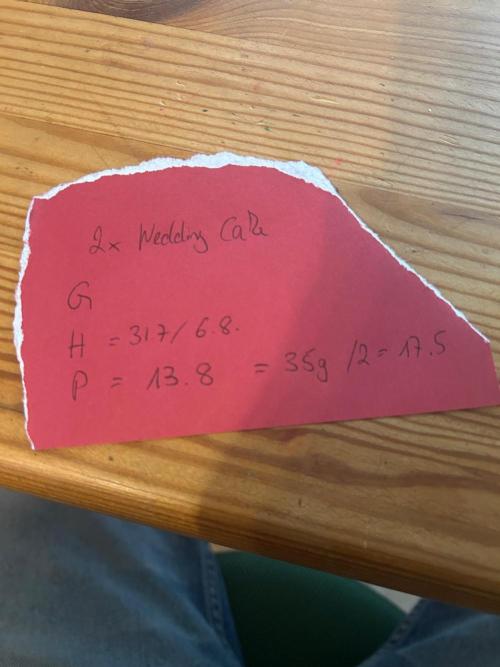 2x Wedding Cake
G
H = 317 / 6.8.
P = 13.8 = 35g /2 = 17.5